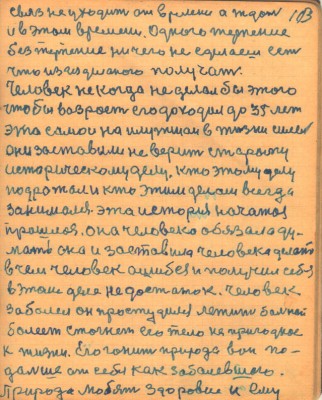 связ не уходит от времени а ждет 103
и в этом времени. Одного терпение
без терпение ничего не сделаеш сет
что из сделаного получат.
Человек некогда не делал бы этого
чтобы возрост его доходил до 35 лет
эта самои на илутшаи в жизни
они заставили не верит старому
историческому делу. Кто этому делу
подрожал и кто этим делам всегда
занимался. Эта история началась
прошлоя. Она человека обязала ду-
мать она и заставила человека делать
в чем человек ошибся и получил себя
в этом деле недостаток. Человек
заболел он простудился лежит болной
болеет стогнет его тело не пригодное
к жизни. Его гонит природа вон по-
далше от себя как заболевшого.
Природа любят здоровие и ему